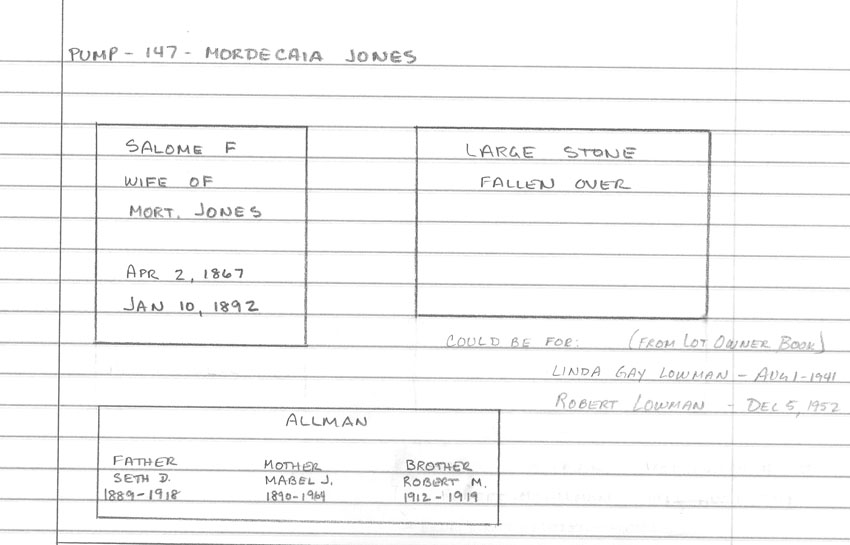 PUMP - 147 - MORDECAIA JONES
SALOME F
WIFE OF
MORT. JONES
APR 2, 1867
JAN 10, 1892
LARGE STONE
FALLEN OVER
COULD BE FOR: (FROM LOT OWNER BOOK)
LINDA GAY LOWMAN - AUG 1-1941
ROBERT LOWMAN - DEC 5, 1952
ALLMAN
FATHER
SETH D.
1889-1918
MOTHER
MABEL J.
1890-1969
BROTHER
ROBERT M.
1912-1919